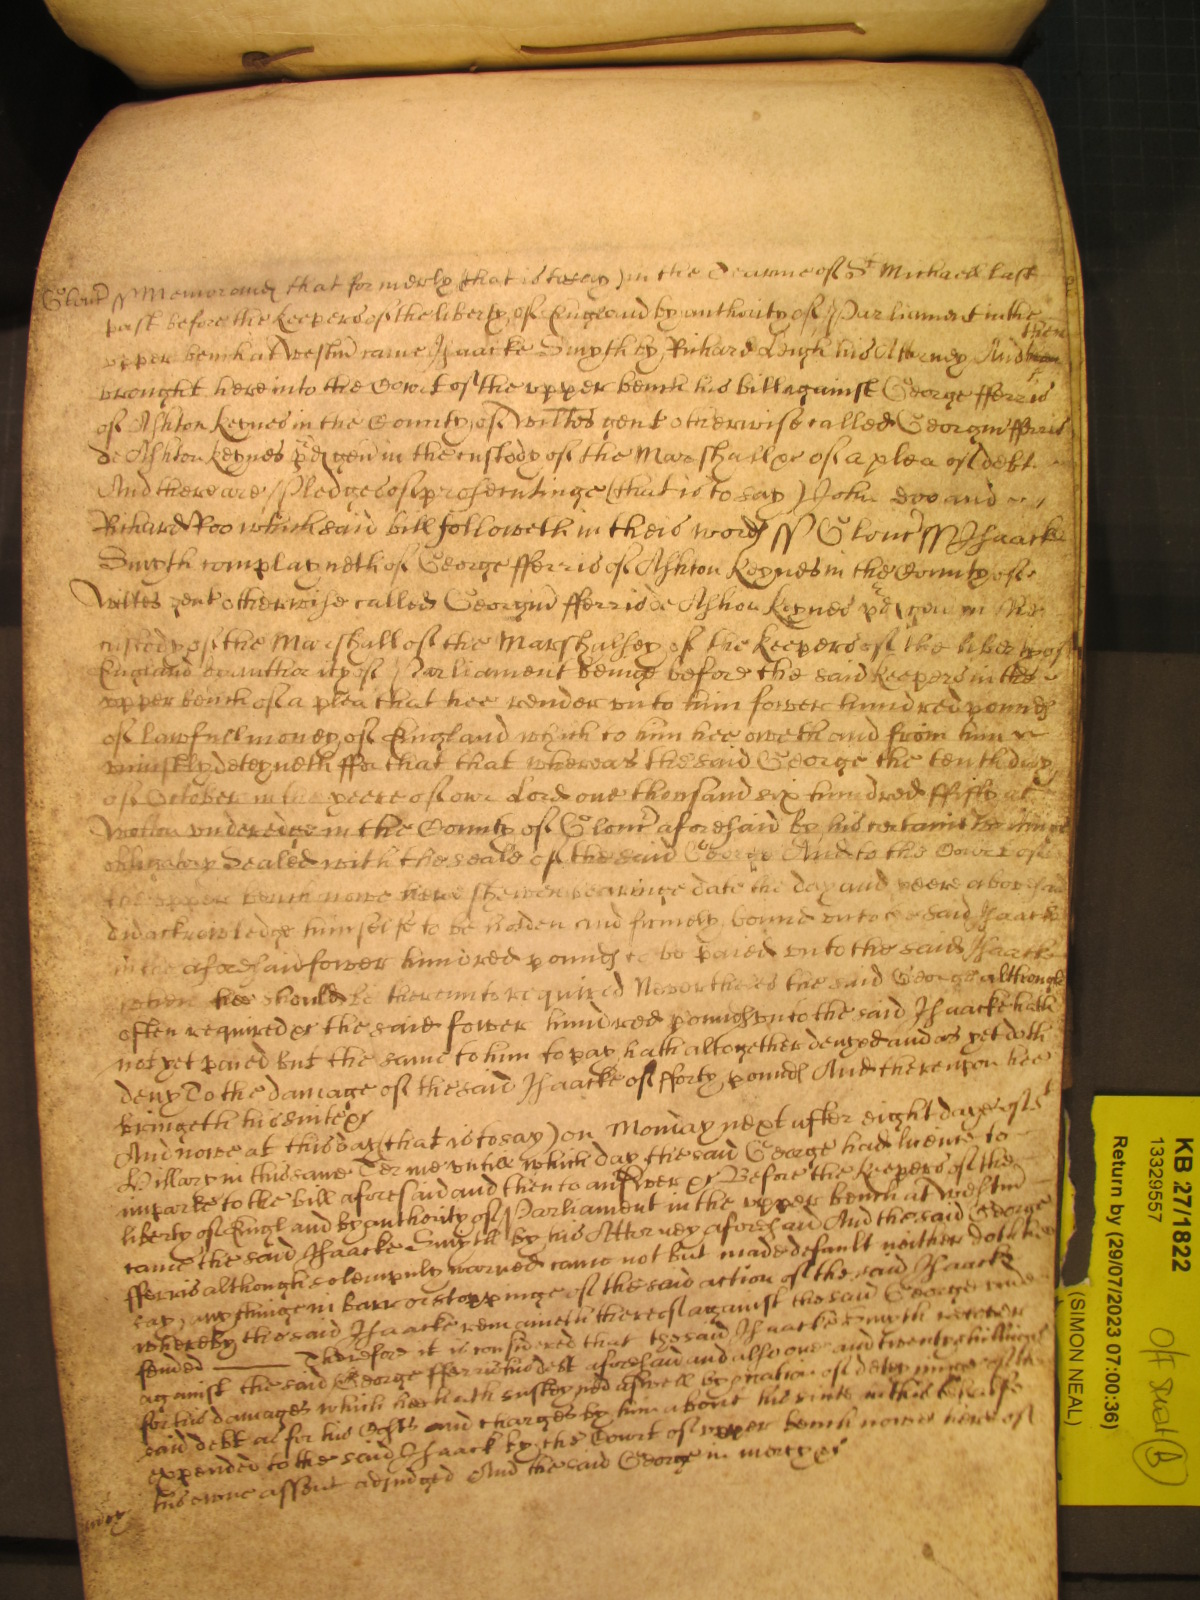 Glouc ss Memorand that formerly (that is to say) in the Tearme of St Michaell last
past before the keepers of the liberty of England by authority of Parliament in the
then
upper bench at Westm came Isaacke Smyth by Richard Leigh his Attorney And
brought here into the Court of the upper bench his bill against George fferris
of Ashton Keynes in the County of Wiltes gent otherwise called Georgiu fferris
de Ashton Keynes pd gen in the custody of the Marshall &c of a plea of debt
And there are pledges of prosecutinge (that is to say) John Doo and
Richard Roo which said bill followeth in theis words ss Glouc ss Isaacke
Smyth complayneth of George fferris of Ashton Keynes in the County of
Wiltes gent otherwise called Georgiu fferris de Ashton Keynes pd gen in the
custody of the Marshall of the Marshalsey of the keepers of the liberty of
England by authority of Parliament beinge before the said keepers in the
upper bench of a plea that hee render unto him fower hundred pounds
of lawfull money of England which to him hee oweth and from him
uniustly deteyneth ffor that that whereas the said George the tenth day
of October in the yeere of our Lord one thousand six hundred ffifty at
Wotton underedge in the County of Glouc aforesaid by his certaine
obligatory Sealed with the seale of the said George And to the Court of
the upper bench nowe here shewen bearinge date the day and yeere abovesaid
did acknowledge himselfe to be holden and firmely bound unto the said Isaacke
in the aforesaid fower hundred pounds to be paied unto the said Isaacke
when hee should be thereunto required Neverthelesse the said George although
often required &c the said fower hundred pounds unto the said Isaacke hath
not yet paied but the same to him to pay hath altogether denyed and as yet doth
deny To the damage of the said Isaacke of fforty pounds And thereupon hee
bringeth his suite &c
And nowe at this day (that is to say) on Monday next after eight dayes of St
Hillary in this same Terme untill which day the said George had licence to
imparle to the bill aforesaid and then to answer &c Before the keepers of the
liberty of England by authority of Parliament in the upper bench at Westm
came the said Isaacke Smyth by his Attorney aforesaid And the said George
fferris although solempnly warned came not but made default neither doth hee
say anythinge in barr or stoppinge of the said action of the said Isaacke
whereby the said Isaacke remaineth thereof against the said George unde
fended Therefore it is considered that the said Isaacke Smyth recover
against the said George fferris his debt aforesaid and also one and twenty shillings
for his damages which hee hath susteyned aswell by occation of deteyninge of the
said debt as for his Costs and charges by him about his suite in this behalfe
expended to the said Isaack by the Court of upper bench nowe here of
his owne assent adjudged And the said George in mercy &c
mcy
KB 27/1822
13329557
Return by (29/07/2023 07:00:36)
(SIMON NEAL)